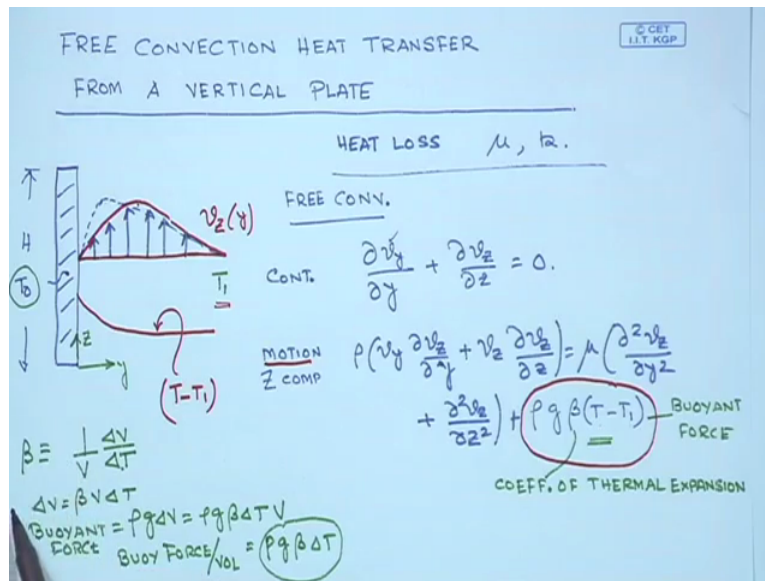 FREE CONVECTION HEAT TRANSFER
FROM A VERTICAL PLATE
© CET
I.I.T. KGP
HEAT LOSS μ, k.
FREE CONV.
H
T₀
z
y
v_z(y)
T₁
(T-T₁)
CONT. ∂v_y/∂y + ∂v_z/∂z = 0.
MOTION
Z COMP
ρ(v_y ∂v_z/∂y + v_z ∂v_z/∂z) = μ(∂²v_z/∂y²
+ ∂²v_z/∂z²) + ρgβ(T-T₁)
BUOYANT
FORCE
COEFF. OF THERMAL EXPANSION
β ≡ 1/V ΔV/ΔT
ΔV = βVΔT
BUOYANT FORCE = ρgΔV = ρgβΔTV
BUOY FORCE/VOL = ρgβΔT